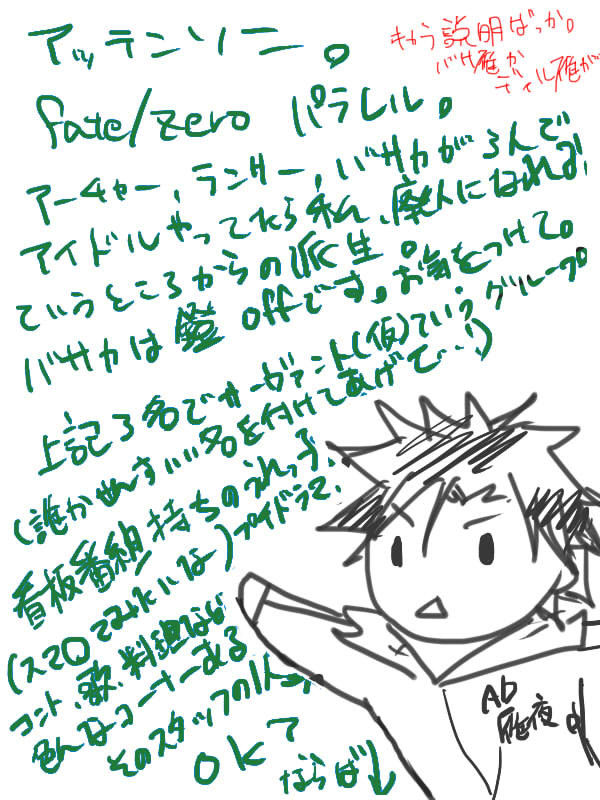 アッテンソニ。
キャラ説明ばっか。
バサ雁か
ディル雁が
fate/zero パラレル。
アーチャー、ランサー、バサカが3人で
アイドルやってたら私、廃人になれる
ていうところからの派生。
バサカは鎧offです。お気をつけて。
上記3名でサーヴァント(仮)ていうグループ。
(誰かせんすいい名を付けてあげて…!)
看板番組持ちのうれっ子、
(スマ○てみたいな)アイドラマ、
コント、歌、料理など
色んなコーナーある
そのスタッフの1人。
OKて
ならば↓
AD
雁夜